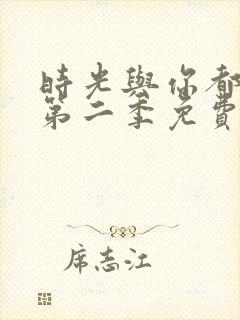 時光與你都
第二季免費
席志江